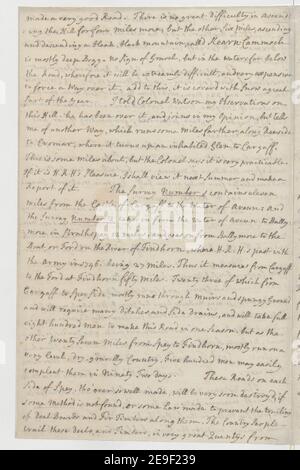 made a very good Road. There is no great difficulty in ascend
ing the Hill for four miles more, but the other six miles, ascending
and descending a blank black mountain, called
is mostly deep Bogg no Sign of Gravel, but in the waters far below
the Road, wherefore it will be extreamly difficult, and very expensive
to force a Way over it, add to this, it is coverd with snow a great
Part of the year. I told Colonel Watson my Observations on
this Hill. he has been over it, and joins in my Opinion, but tells
me of another Way, which runs some miles farther along Deeside
to where it turns up an inhabited Glen to Corgaff
This is some miles about, but the Colonel says it is very practicable
If it is H.R.H's Pleasure, I shall view it next Summer and make a
Report of it. The Survey Number contains eleven
miles from the Castle of Corgaff to the Water of Avern and
the Survey Number from the Water of Avern to Bally
more in Strathspey from Ballymore to the
Boat or Ford on the River of Findhorn, where H.R.H's past with
the Army in 1746, being 27 miles. Thus it measures from Corgaff
to the Ford at Findhorn fifty miles. Twenty three of which from
Corgaff to Spey Side mostly runs through Muirs and spungy Ground
and will require many Ditches and Side Drains, and will take full
eight hundred men to make this Road in one Season, but as the
other Twenty Seven miles from Spey to Findhorn, mostly runs on a
very level, dry, gravelly Country, five hundred men may easily
compleat them in Ninety Two days. These Roads on each
Side of Spey, tho' ever so well made, will be very soon destroy'd if
some method is not found, or some Law made to prevent the trailing
of Deal Boards and Fir Timbers along them. The Country People
trail these deals, and Timbers, in very great Quantitys from
alamy
Image ID: 2E9F239
www.alamy.com